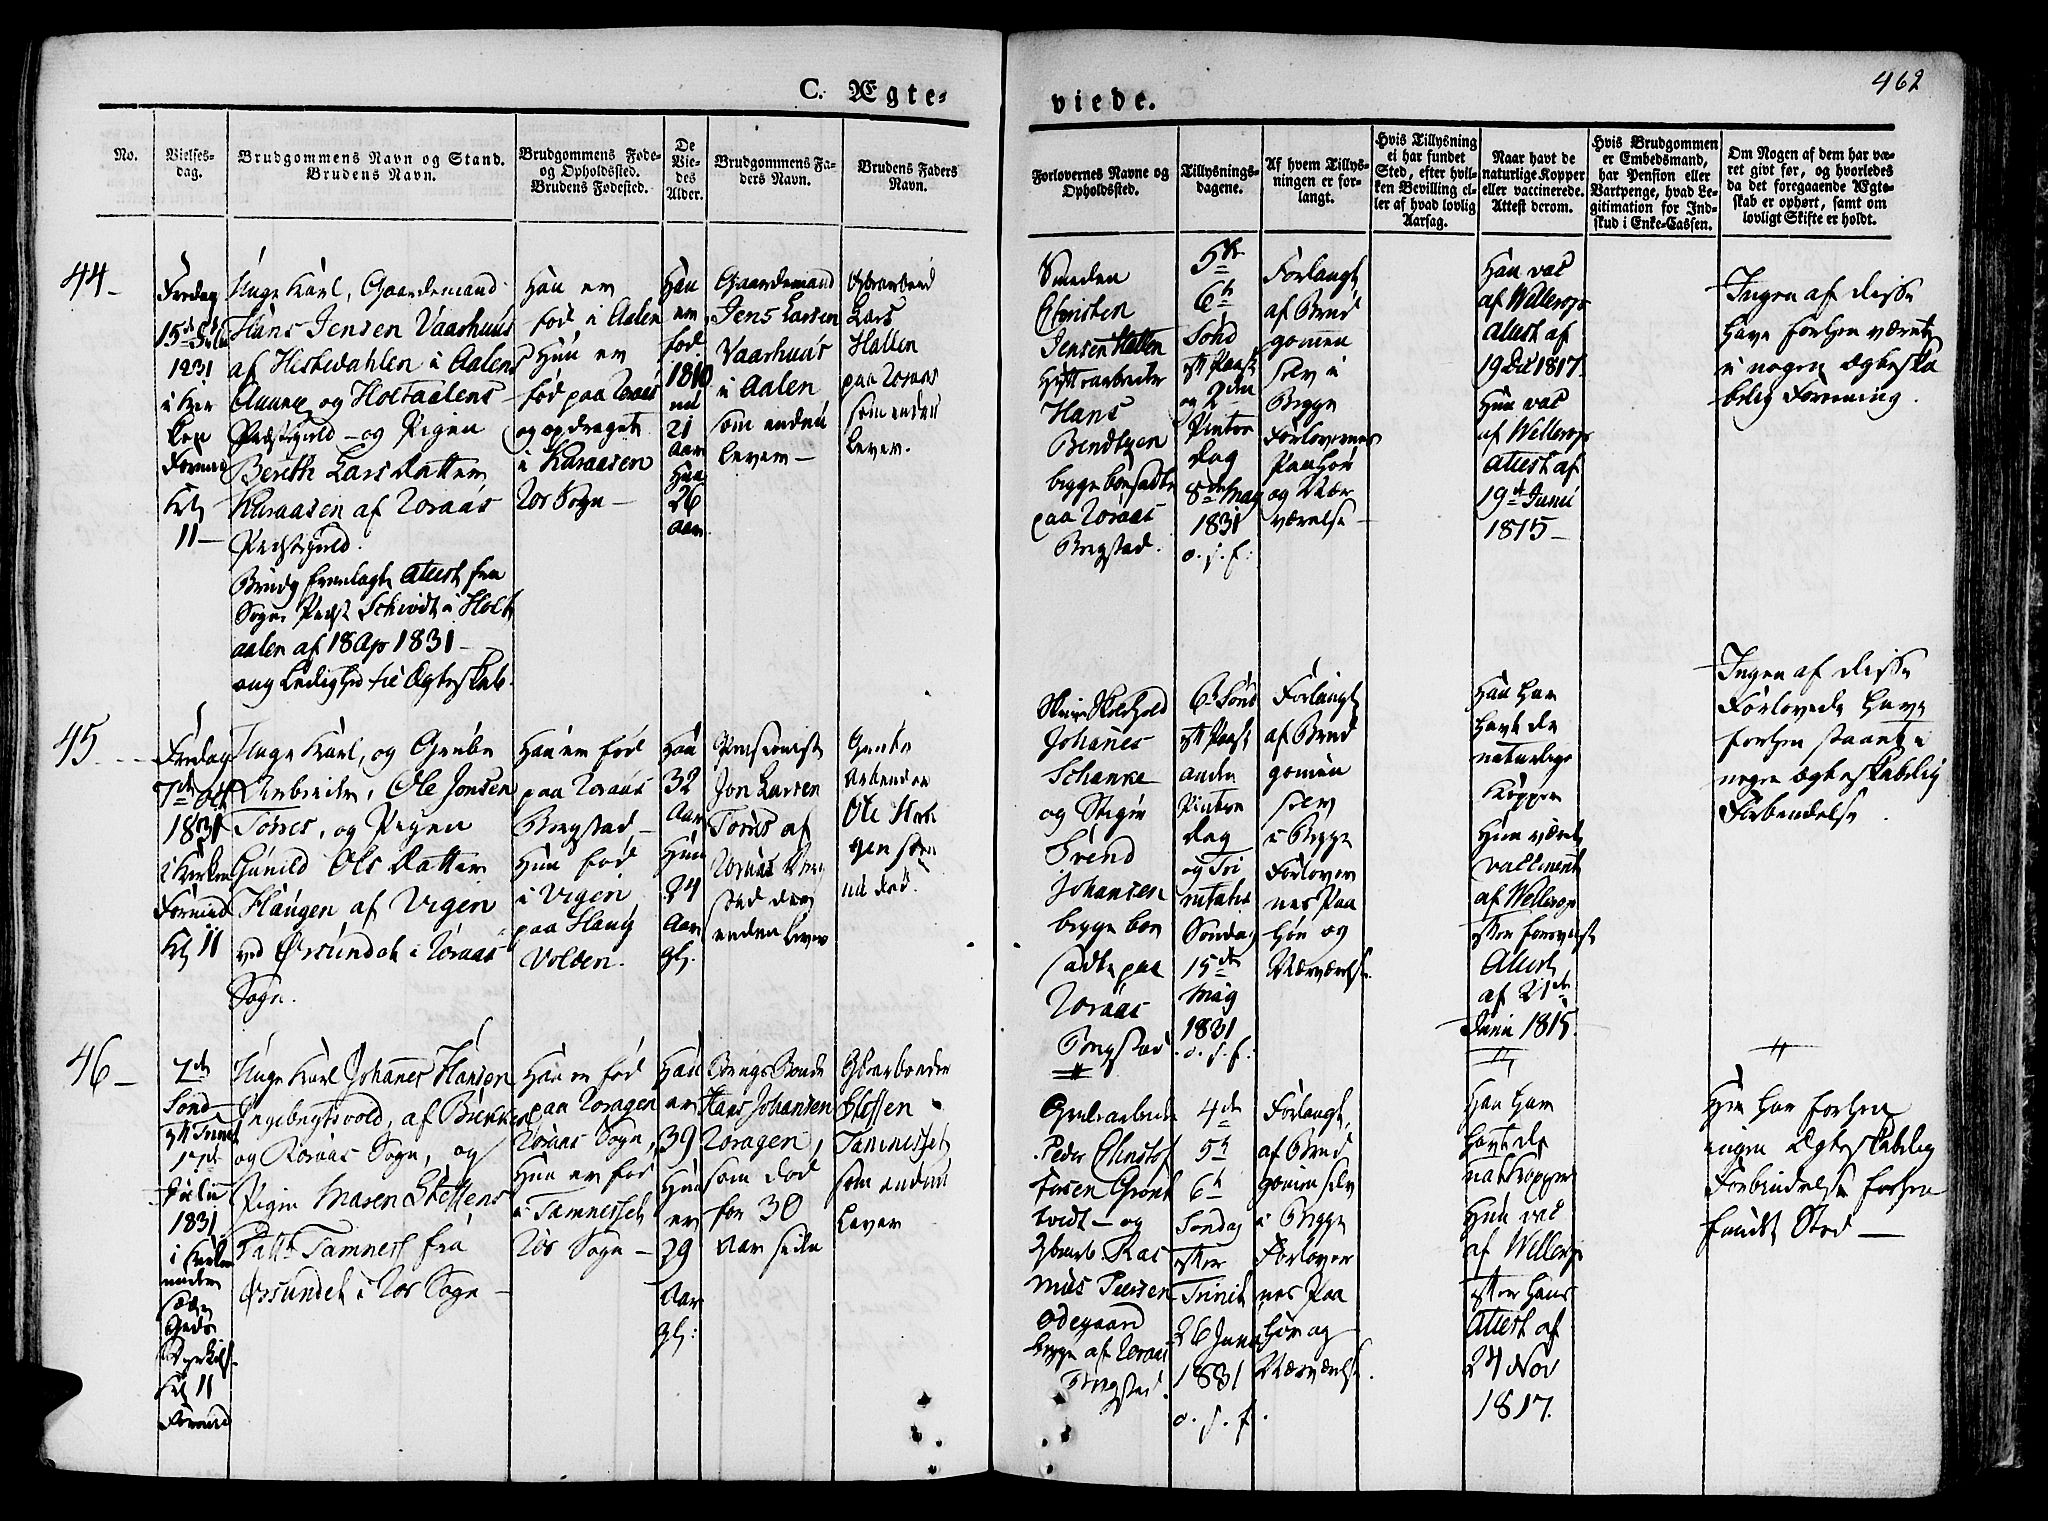 462
C. Ægte-
viede.
No.
Vielses-
dag.
Brudgommens Navn og Stand.
Brudens Navn.
Brudgommens Føde-
og Opholdssted.
Brudens Fødested.
De
Vie-
des
Alder.
Brudgommens Fa-
ders Navn.
Brudens Faders
Navn.
Forlovernes Navne og
Opholdssted.
Tillysnings-
dagene.
Af hvem Tillys-
ningen er for-
langt.
Hvis Tillysning
ei har fundet
Sted, efter hvil-
ken Bevilling el-
ler af hvad lovlig
Aarsag.
Naar havt de
naturlige Kopper
eller vaccinerede.
Attest derom.
Hvis Brudgommen
er Embedsmand,
har Pension eller
Vartpenge, hvad Le-
gitimation for Ind-
skud i Enke-Cassen.
Om Nogen af dem har væ-
ret gift før, og hvorledes
da det foregaaende Ægte-
skab er ophørt, samt om
lovligt Skifte er holdt.
44
Fredag
1831
11
Unge Karl, Gaardemand
Hans Jensen Vaarhuus
af Hesbedahlen i Aalens
og Holtaalens
Præstegield og Pigen
Bereth Lars Datter
Karaasen af Røraas
Præstegield.
Brudg fremlagte Attest fra
Sogne Præst Schmidt i Holt
aalen af 18 Ap 1831
om Ledighed til Ægteskab.
Han er
fød i Aalen
Hun er
fød paa Røraas
og opdraget
i Karaasen
Rør Sogn
Han
er
fød
1810
nu
21
Aar
Hun
26
Aar
Gaardemand
Jens Larsen
Vaarhuus
i Aalen
som endnu
lever
Lars
Hallen
paa Røraas
som endnu
lever.
Smeden
Christen
Jensen Hallen
Hytte arbeider
Hans
Bendtzen
begge boesadte
paa Røraas
Bergstad.
5te
6te
Sønd
eft Paask
og 2den
Pintse
dag
8de May
1831
o. s. f.
Forlangt
af Brud
gomen
selv i
Begge
Forlovernes
Paahør
og Nær
værelse
Han vac
af Wellerop
Attest af
19 Dec 1817.
Hun vac
af Wellerop
Attest af
19de Junii
1815
Ingen af disse
have forhen været
i nogen Ægteska
belig Forening.
45
Fredag
7de Oct
1831
i Kirken
Formid
Kl 11
Unge Karl, og Grube
Arbeider, Ole Jonsen
Torres, og Pigen
Gunild Ols Datter
Haugen af Vigen
ved Ørsundet i Røraas
Sogn.
Han er fød
paa Røraas
Bergstad
Hun fød
i Vigen
paa Haug
Volden.
Han
32
Aar
Hun
24
Aar
gl.
Pensionist
Jon Larsen
Torres af
Røraas Berg
stad der
endnu lever
Grube
Arbeider
Ole
nu død.
Johanes
Schanke
og Stiger
Svend
Johansen
begge boe
sadte paa
Røraas
Bergstad
6te Sønd
eft Paask
anden
Pintse
dag
og Tri
nitatis
Søndag
15de
May
1831
o. s. f.
Forlangt
af Brud
gomen
selv
i Begge
Forlover
nes Paa
hør og
Nærværelse.
Han har
havt de
naturlige
Kopper
Hun været
vaccineret
af Wellerop
efter foreviist
Attest
af 21de
Junii 1815.
Ingen af disse
Forlovede have
forhen staaet i
nogen Ægteskabelig
Forbindelse.
46
7de
Sønd
eft Trinit
17de
Julii
1831
i Kirken
under
Guds
Dyrkelse
Kl 11
Formid
Unge Karl Johanes Hansen
Ingebrigtsvold, af Brekken
og Røraas Sogn, og
Pigen Maren Steffens
Datt. Tamnes fra
Ørsundet i Rør Sogn
Han er fød
paa Røragen
Røraas Sogn,
Hun er fød
i Tamnesset
Rør Sogn
Han
er
39
Hun
er
29
Aar
gl.
Bergs Bonde
Hans Johansen
Røragen,
som død
for 30
Aar siden
Steffen
Tamnesset
som endnu
lever
Grubearbeider
Peder Christof
fersen Grønt
vedt og
Ras
mus Pedersen
Ødegaard
begge af Røraas
Bergstad.
4de
5te
6te
Søndag
efter
Trinit
26 Junii
1831
o. s. f.
Forlangt
af Brud
gomen selv
i Begge
Forlover
nes Paa
hør og
Nærværelse.
Han har
havt de
nat Kopper
Hun vac
af Wellerop
efter hans
Attest af
24 Nov
1817.
Ei har forhen
nogen Ægteskabelig
Forbindelse forhen
fundet Sted